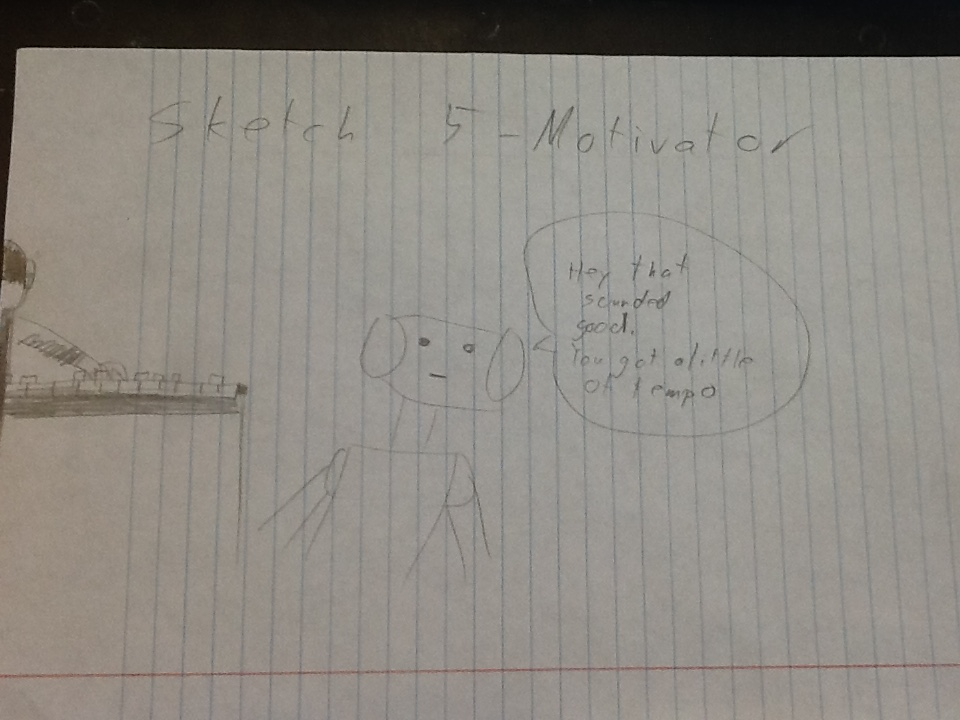 Sketch 5 - Motivator
Hey that
sounded
good.
You got a little
of tempo